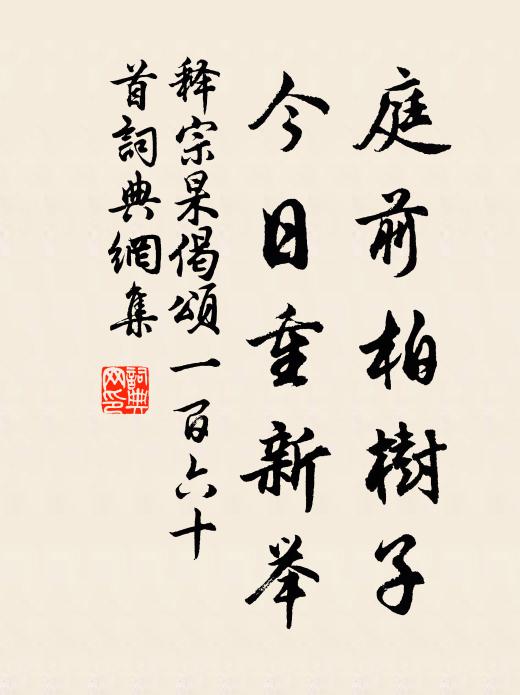 庭前柏樹子
今日重新举
释宗杲偈頌一百六十
首詞典網集
詞典網印